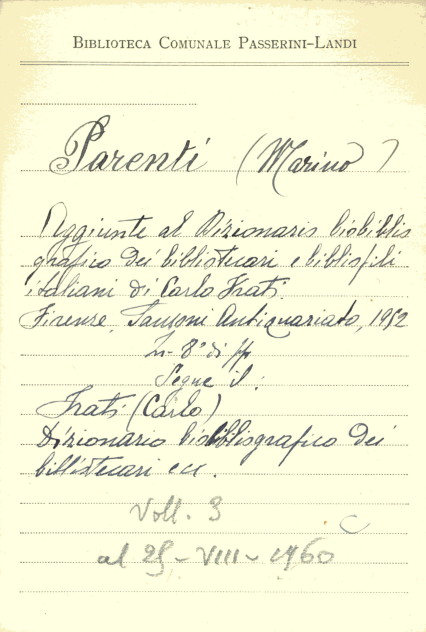 BIBLIOTECA COMUNALE PASSERINI-LANDI
Parenti (Marino)
Aggiunte al Dizionario biobiblio
grafico dei bibliotecari e bibliofili
italiani di Carlo Frati.
Firenze, Sansoni Antiquariato, 1952
In-8° di pp
Segue il:
Frati (Carlo)
Dizionario biobibliografico dei
bibliotecari ecc.
Voll. 3
al 25-VIII-1960